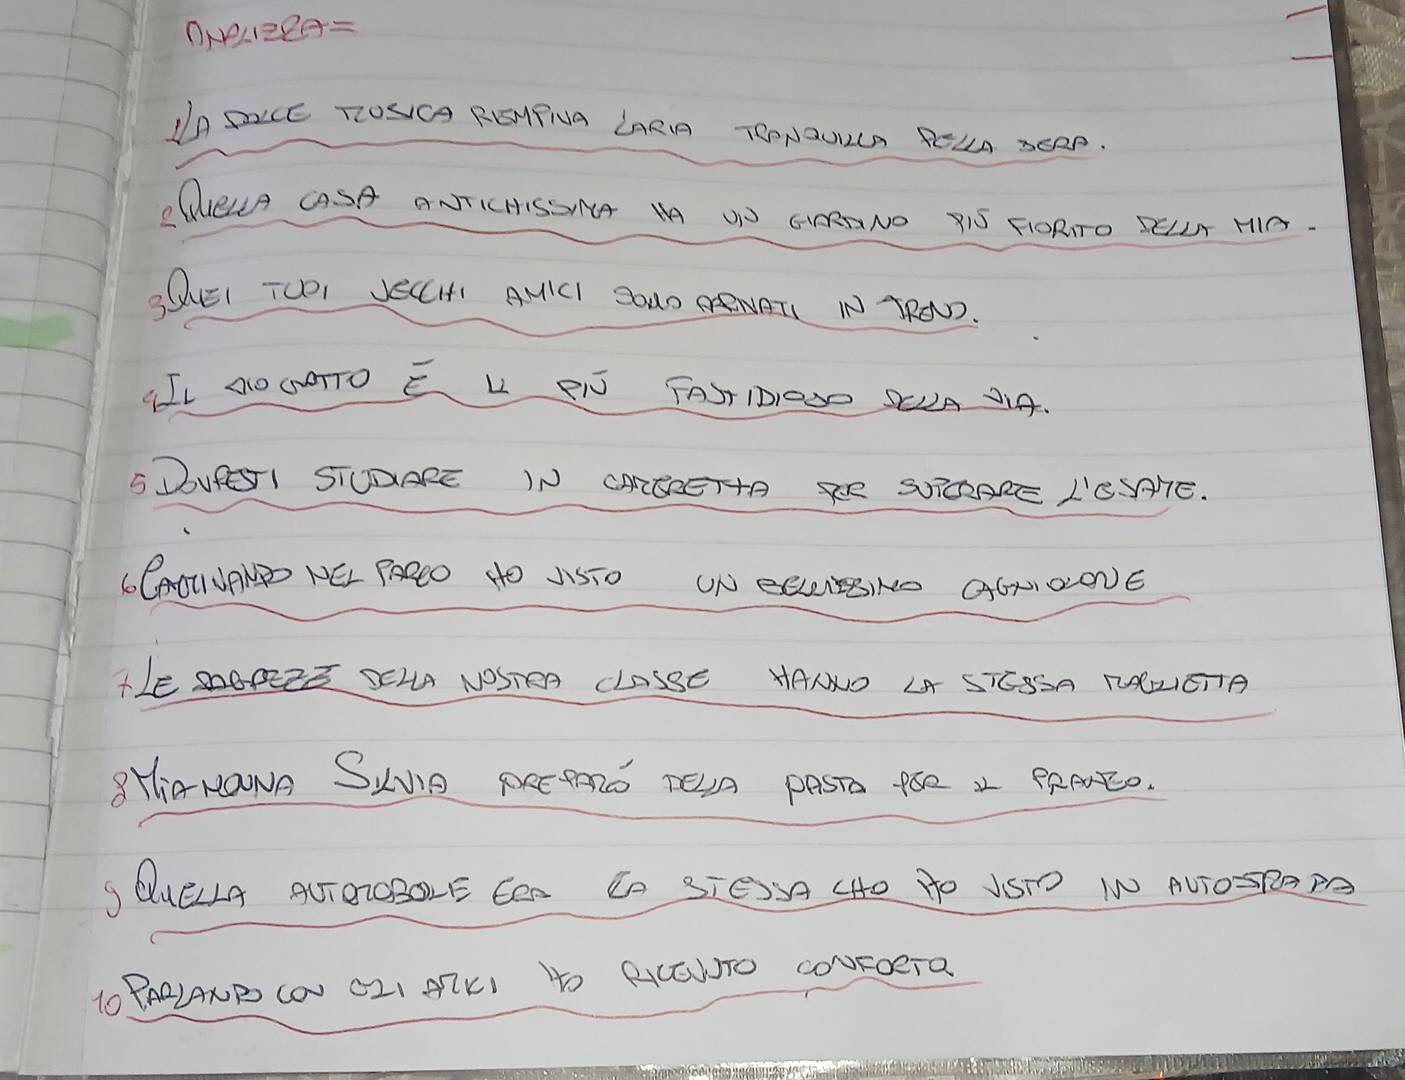 ANALIZZA=
1 LA DOLCE MUSICA RIEMPIVA LARIA TRANQUILLA DELLA SERA.
2 QUELLA CASA ANTICHISSIMA HA UN GIARDINO PIÙ FIORITO DELLA MIA.
3 QUEI TUOI VECCHI AMICI SONO ARRIVATI IN TRENO.
4 IL MIO GATTO È IL PIÙ FASTIDIOSO DELLA VIA.
5 DOVRESTI STUDIARE IN CAMERETTA PER SUPERARE L'ESAME.
6 CAMMINANDO NEL PARCO HO VISTO UN BELLISSIMO CAGNOLONE
7 LE RAGAZZE DELLA NOSTRA CLASSE HANNO LA STESSA MAGLIETTA
8 MIA NONNA SILVIA PREPARÓ DELLA PASTA PER IL PRANZO.
9 QUELLA AUTOMOBOLE ERA LA STESSA CHO HO VISTO IN AUTOSTRADA
10 PARLANDO CON GLI AMICI HO RICEVUTO CONFORTO